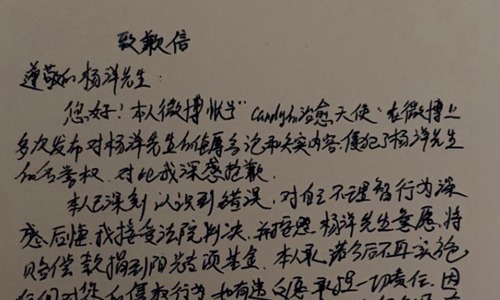 致歉信
尊敬的杨洋先生：
您好！本人微博帐号“candy的治愈天使”在微博上
多次发布对杨洋先生的侮辱言论和失实内容，侵犯了杨洋先生
的名誉权，对此我深感抱歉。
本人已深刻认识到错误，对自己不理智行为深
感后悔，我接受法院判决，并按照杨洋先生意愿，将
赔偿款捐到阳光专项基金。本人承诺今后不再实施
任何对您的侵权行为，如有违反愿承担一切责任。因